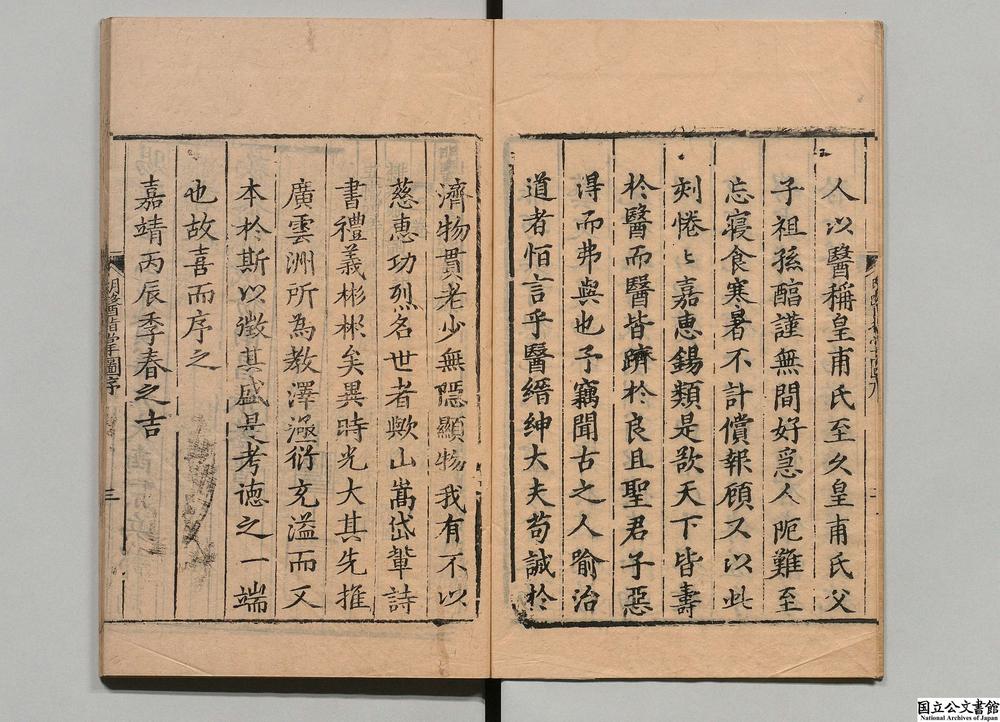 人以醫稱皇甫氏至夂皇甫氏父
子祖孫醕謹無間好急人阨難至
忘寝食寒暑不計償報顧又以此
刻惓〻嘉恵錫類是欲天下皆夀
於醫而醫皆躋於良且聖君子惡
得而弗與也予竊聞古之人喻治
道者恒言乎醫縉紳大夫苟誠於
濟物貫老少無隱顯物我有不以
慈惠功烈名世者歟山嵩岱輩詩
書禮義彬彬矣異時光大其先推
廣雲洲所為教澤涵衍充溢而又
本於斯以徵其盛是考徳之一端
也故喜而序之
嘉靖丙辰季春之吉
明醫指掌圖序
三
国立公文書館
National Archives of Japan